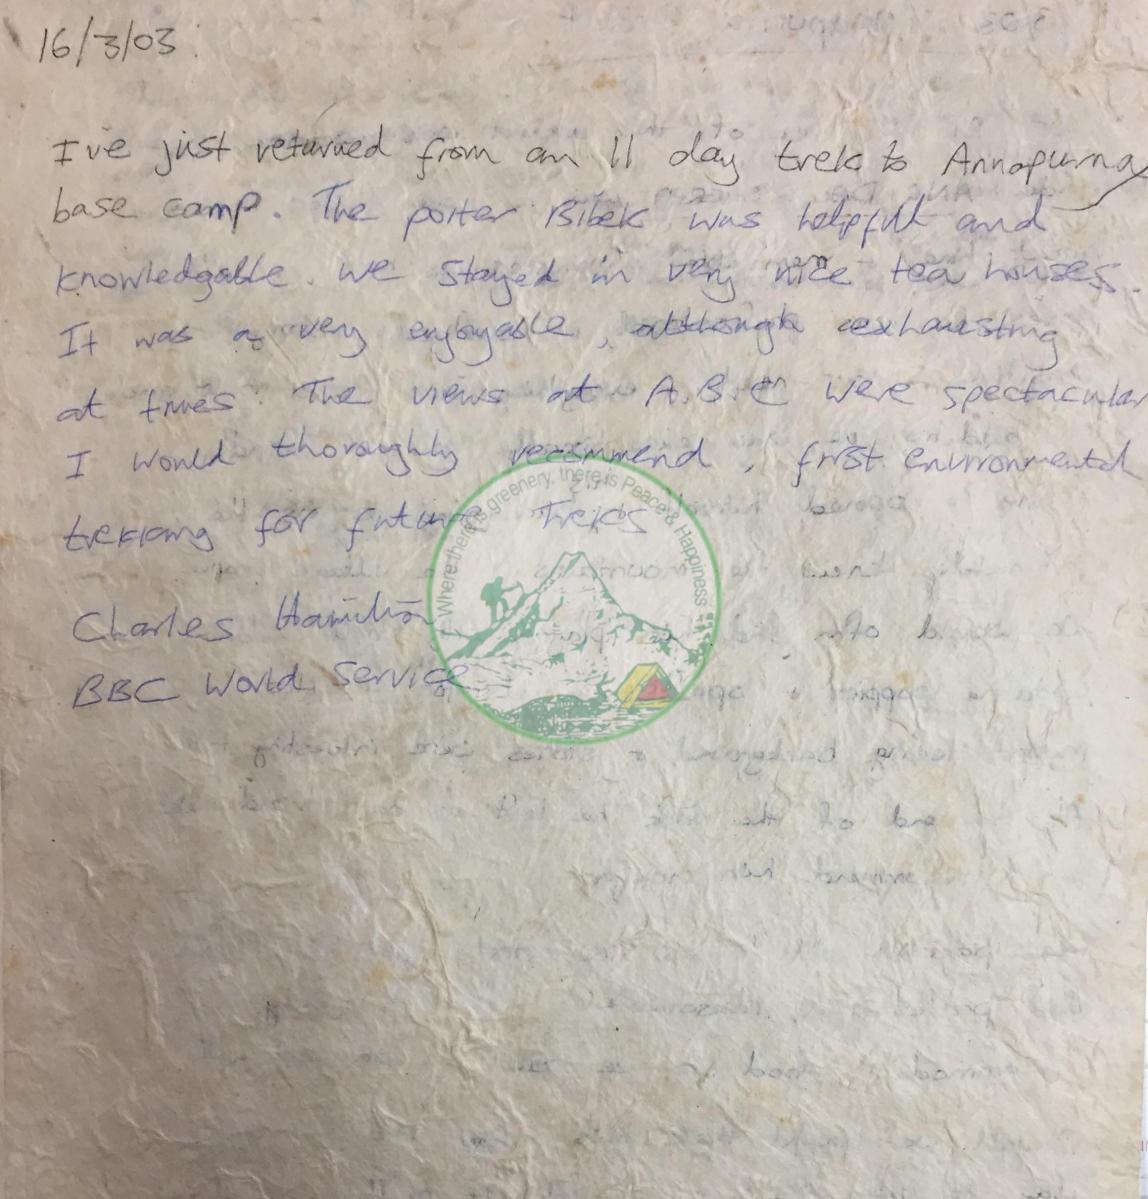 16/3/03.
I've just returned from an 11 day trek to Annapurna
base camp. The porter Bibek was helpfull and
knowledgable. We stayed in very nice tea houses.
It was a very enjoyable, although exhausting
at times. The views at A.B.C were spectacular
I would thoroughly recommend, first environmental
trekking for future Treks
Charles Hamilton
BBC World Service
Where there is greenery, there is Peace & Happiness